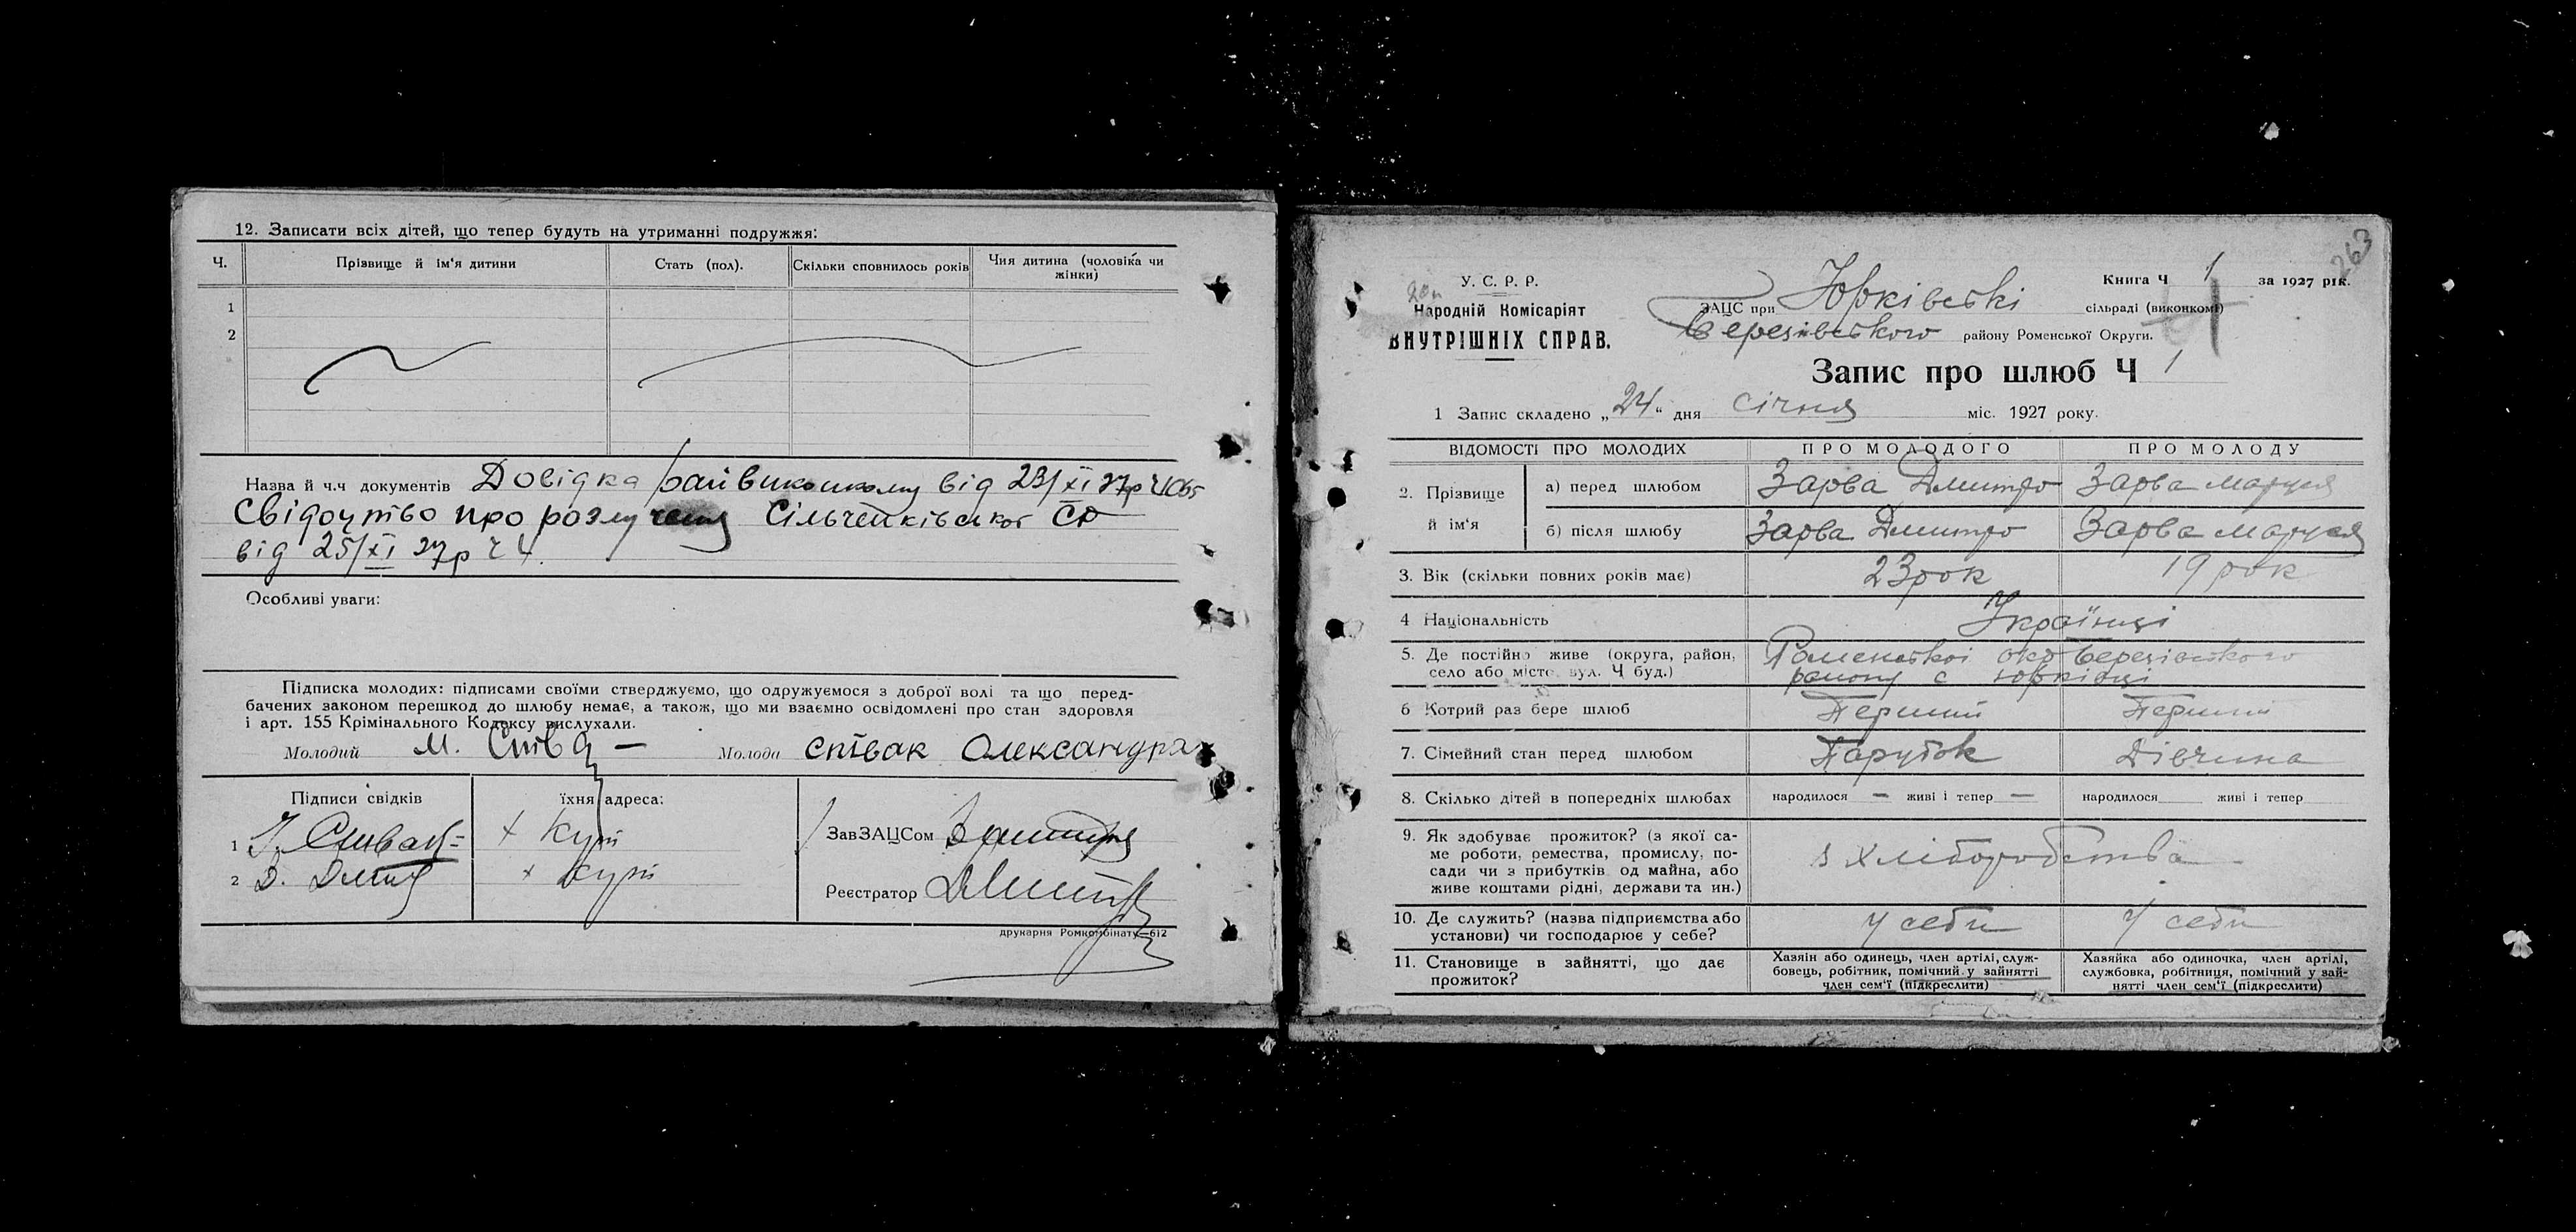 12. Записати всіх дітей, що тепер будуть на утриманні подружжя:
Ч. Прізвище й ім'я дитини Стать (пол). Скільки сповнилось років Чия дитина (чоловіка чи жінки)
1
2
Назва й ч.ч документів Довідка райвиконкому від 23/XI 27р Ч
Свідоцтво про розлучення СР
від 25/XI 27р Ч 4.
Особливі уваги:
Підписка молодих: підписами своїми стверджуємо, що одружуємося з доброї волі та що перед-
бачених законом перешкод до шлюбу немає, а також, що ми взаємно освідомлені про стан здоровля
і арт. 155 Крімінального Кодексу вислухали.
Молодий М. Молода Співак Олександра
Підписи свідків їхня адреса:
1 х Курі ЗавЗАЦСом
2 Д. х Курі
Реєстратор
друкарня Ромкомбінату—612
263
У. С. Р. Р.
Народній Комісаріят
ВНУТРІШНІХ СПРАВ.
Книга Ч 1 за 1927 рік.
ЗАЦС при Юрківські сільраді (виконкомі)
Березівського району Роменської Округи.
Запис про шлюб Ч 1
1 Запис складено „24" дня січня міс. 1927 року.
ВІДОМОСТІ ПРО МОЛОДИХ ПРО МОЛОДОГО ПРО МОЛОДУ
2. Прізвище й ім'я а) перед шлюбом Зарва Дмитро Зарва Маруся
б) після шлюбу Зарва Дмитро Зарва Маруся
3. Вік (скільки повних років має) 23 рок 19 рок
4 Національність Українці
5. Де постійно живе (округа, район, Роменської окр Березівського
село або місто вул. Ч буд.) району с Юрківці
6 Котрий раз бере шлюб Перший Перший
7. Сімейний стан перед шлюбом Парубок Дівчина
8. Скілько дітей в попередніх шлюбах народилося — живі і тепер — народилося живі і тепер
9. Як здобуває прожиток? (з якої са-
ме роботи, ремества, промислу, по-
сади чи з прибутків од майна, або
живе коштами рідні, держави та ин.)
з хліборобства
10. Де служить? (назва підприємства або
установи) чи господарює у себе?
у себе у себе
11. Становище в зайнятті, що дає
прожиток?
Хазяін або одинець, член артілі, служ-
бовець, робітник, помічний у зайнятті
член сем'ї (підкреслити)
Хазяйка або одиночка, член артілі,
службовка, робітниця, помічний у зай-
нятті член сем'ї (підкреслити)